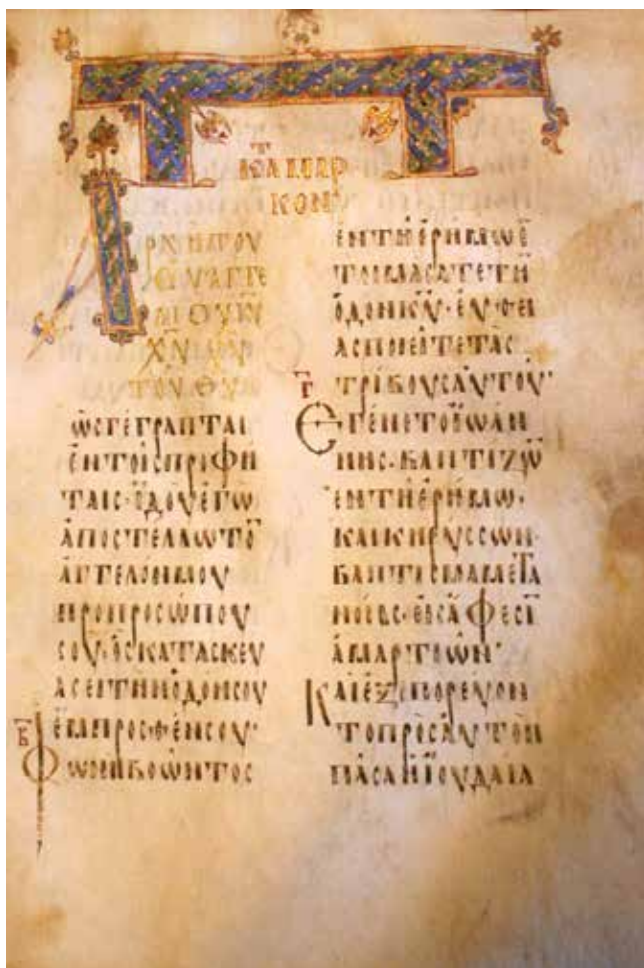 ΚΑΤΑ ΜΑΡ
ΚΟΝ
ΑΡΧΗ ΤΟΥ
ΕΥΑΓΓΕ
ΛΙΟΥ ΙΥ
ΧΥ ΥΙΟΥ
ΤΟΥ ΘΥ
ὡς γέγραπται
ἐν τοῖς προφή
ταις· ἰδοὺ ἐγὼ
ἀποστέλλω τὸ
ἄγγελόν μου
πρὸ προσώπου
σου· ὃς κατασκευ
άσει τὴν ὁδόν σου
ἔμπροσθέν σου·
Β Φωνὴ βοῶντος
ἐν τῇ ἐρήμω ἑ
τοιμάσατε τὴ
ὁδὸν κυ· εὐθεί
ας ποιεῖτε τὰς
Γ τρίβους αὐτοῦ·
Ἐγένετο ἰωάν
νης· βαπτίζω
ἐν τῇ ἐρήμω·
καὶ κηρύσσων·
βάπτισμα μετα
νοίας· εἰς ἄφεσι
ἁμαρτιῶν·
Καὶ ἐξεπορεύον
το πρὸς αὐτὸν
πᾶσα ἡ ἰουδαία